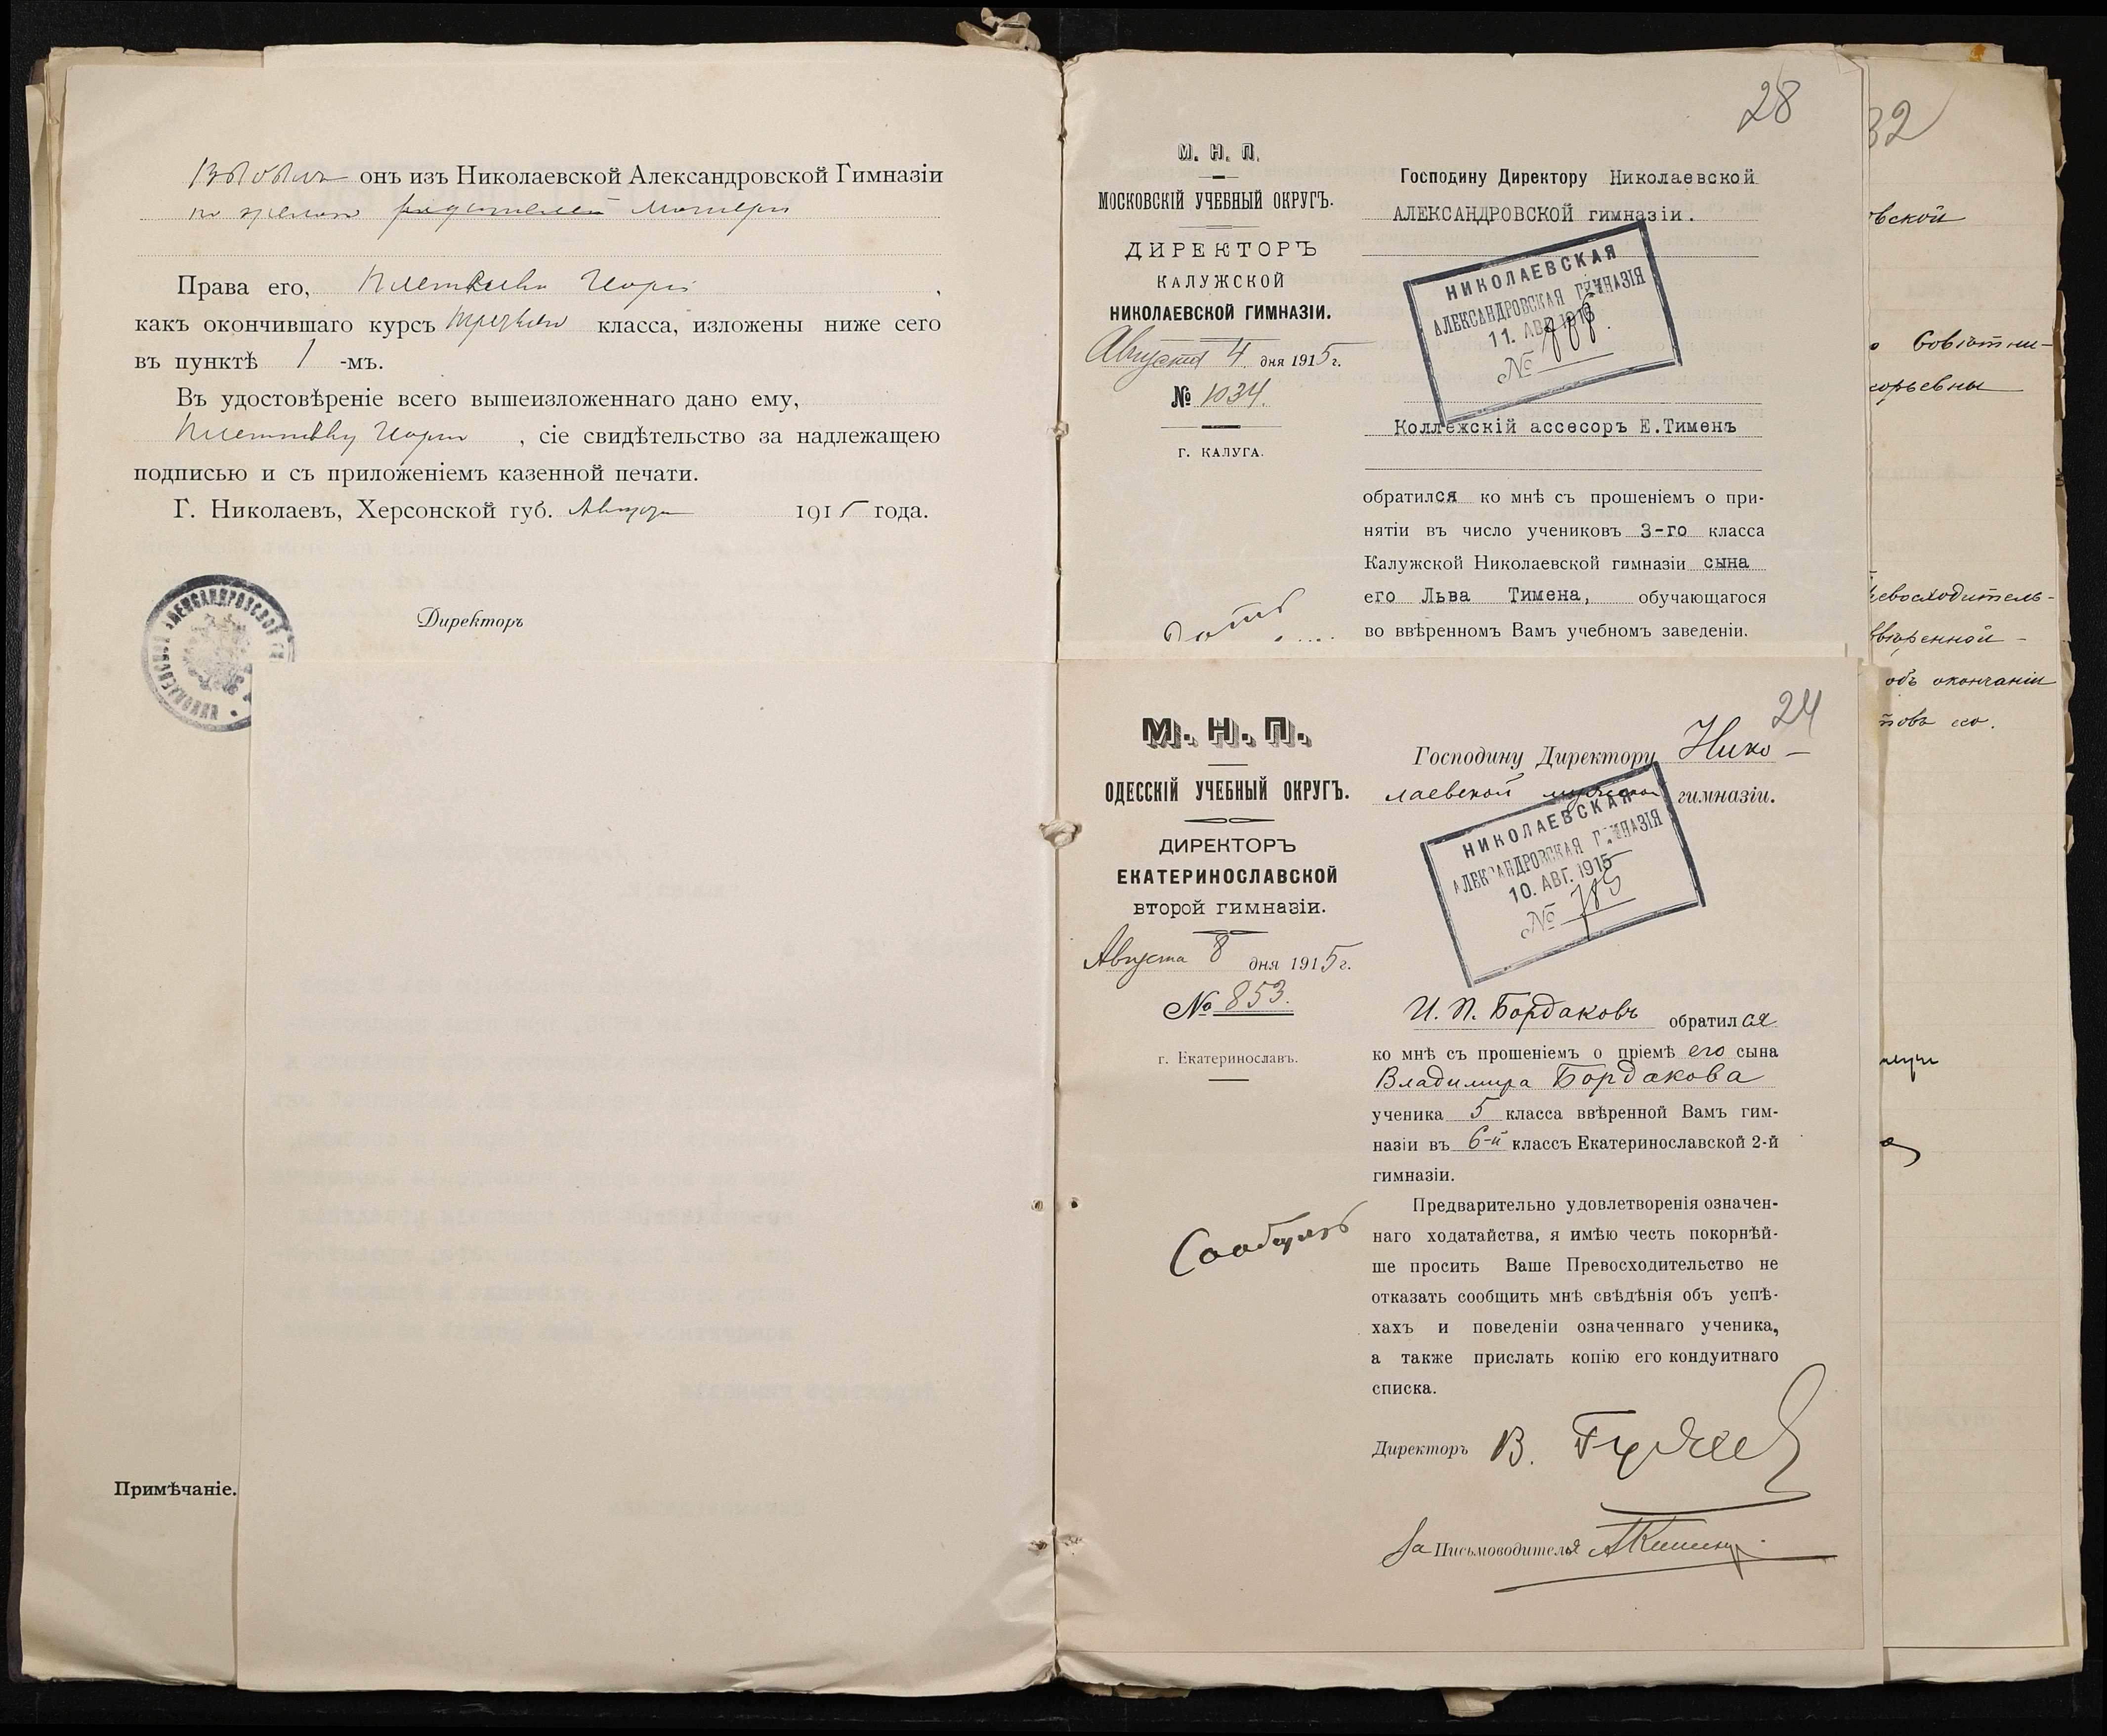 Выбылъ онъ изъ Николаевской Александровской Гимназіи
по желан родителей Матери
Права его,
какъ окончившаго курсъ класса, изложены ниже сего
въ пунктѣ 1 -мъ.
Въ удостовѣреніе всего вышеизложеннаго дано ему,
, сіе свидѣтельство за надлежащею
подписью и съ приложеніемъ казенной печати.
Г. Николаевъ, Херсонской губ. 1915 года.
Директоръ
Примѣчаніе.
28
М. Н. П.
МОСКОВСКІЙ УЧЕБНЫЙ ОКРУГЪ.
ДИРЕКТОРЪ
КАЛУЖСКОЙ
НИКОЛАЕВСКОЙ ГИМНАЗІИ.
Августа 4 дня 1915 г.
№ 1034.
Г. КАЛУГА.
Господину Директору Николаевской
АЛЕКСАНДРОВСКОЙ гимназіи.
НИКОЛАЕВСКАЯ
АЛЕКСАНДРОВСКАЯ ГИМНАЗІЯ
11. АВГ. 1915
№
Коллежскій ассесоръ Е.Тименъ
обратился ко мнѣ съ прошеніемъ о при-
нятіи въ число учениковъ 3-го класса
Калужской Николаевской гимназіи сына
его Льва Тимена, обучающагося
во ввѣренномъ Вамъ учебномъ заведеніи.
24
М. Н. П.
ОДЕССКІЙ УЧЕБНЫЙ ОКРУГЪ.
ДИРЕКТОРЪ
ЕКАТЕРИНОСЛАВСКОЙ
второй гимназіи.
Августа 8 дня 1915 г.
№ 853.
г. Екатеринославъ.
Господину Директору Нико-
лаевской мужской гимназіи.
НИКОЛАЕВСКАЯ
АЛЕКСАНДРОВСКАЯ ГИМНАЗІЯ
10. АВГ. 1915
№ 785
И. П. Бордаковъ обратился
ко мнѣ съ прошеніемъ о пріемѣ его сына
Владимира Бордакова
ученика 5 класса ввѣренной Вамъ гим-
назіи въ 6-й классъ Екатеринославской 2-й
гимназіи.
Предварительно удовлетворенія означен-
наго ходатайства, я имѣю честь покорнѣй-
ше просить Ваше Превосходительство не
отказать сообщить мнѣ свѣдѣнія объ успѣ-
хахъ и поведеніи означеннаго ученика,
а также прислать копію его кондуитнаго
списка.
Директоръ В.
За Письмоводителя
32
вской
орьевны
евосходитель-
ввѣренной-
объ окончаніи
товъ его.